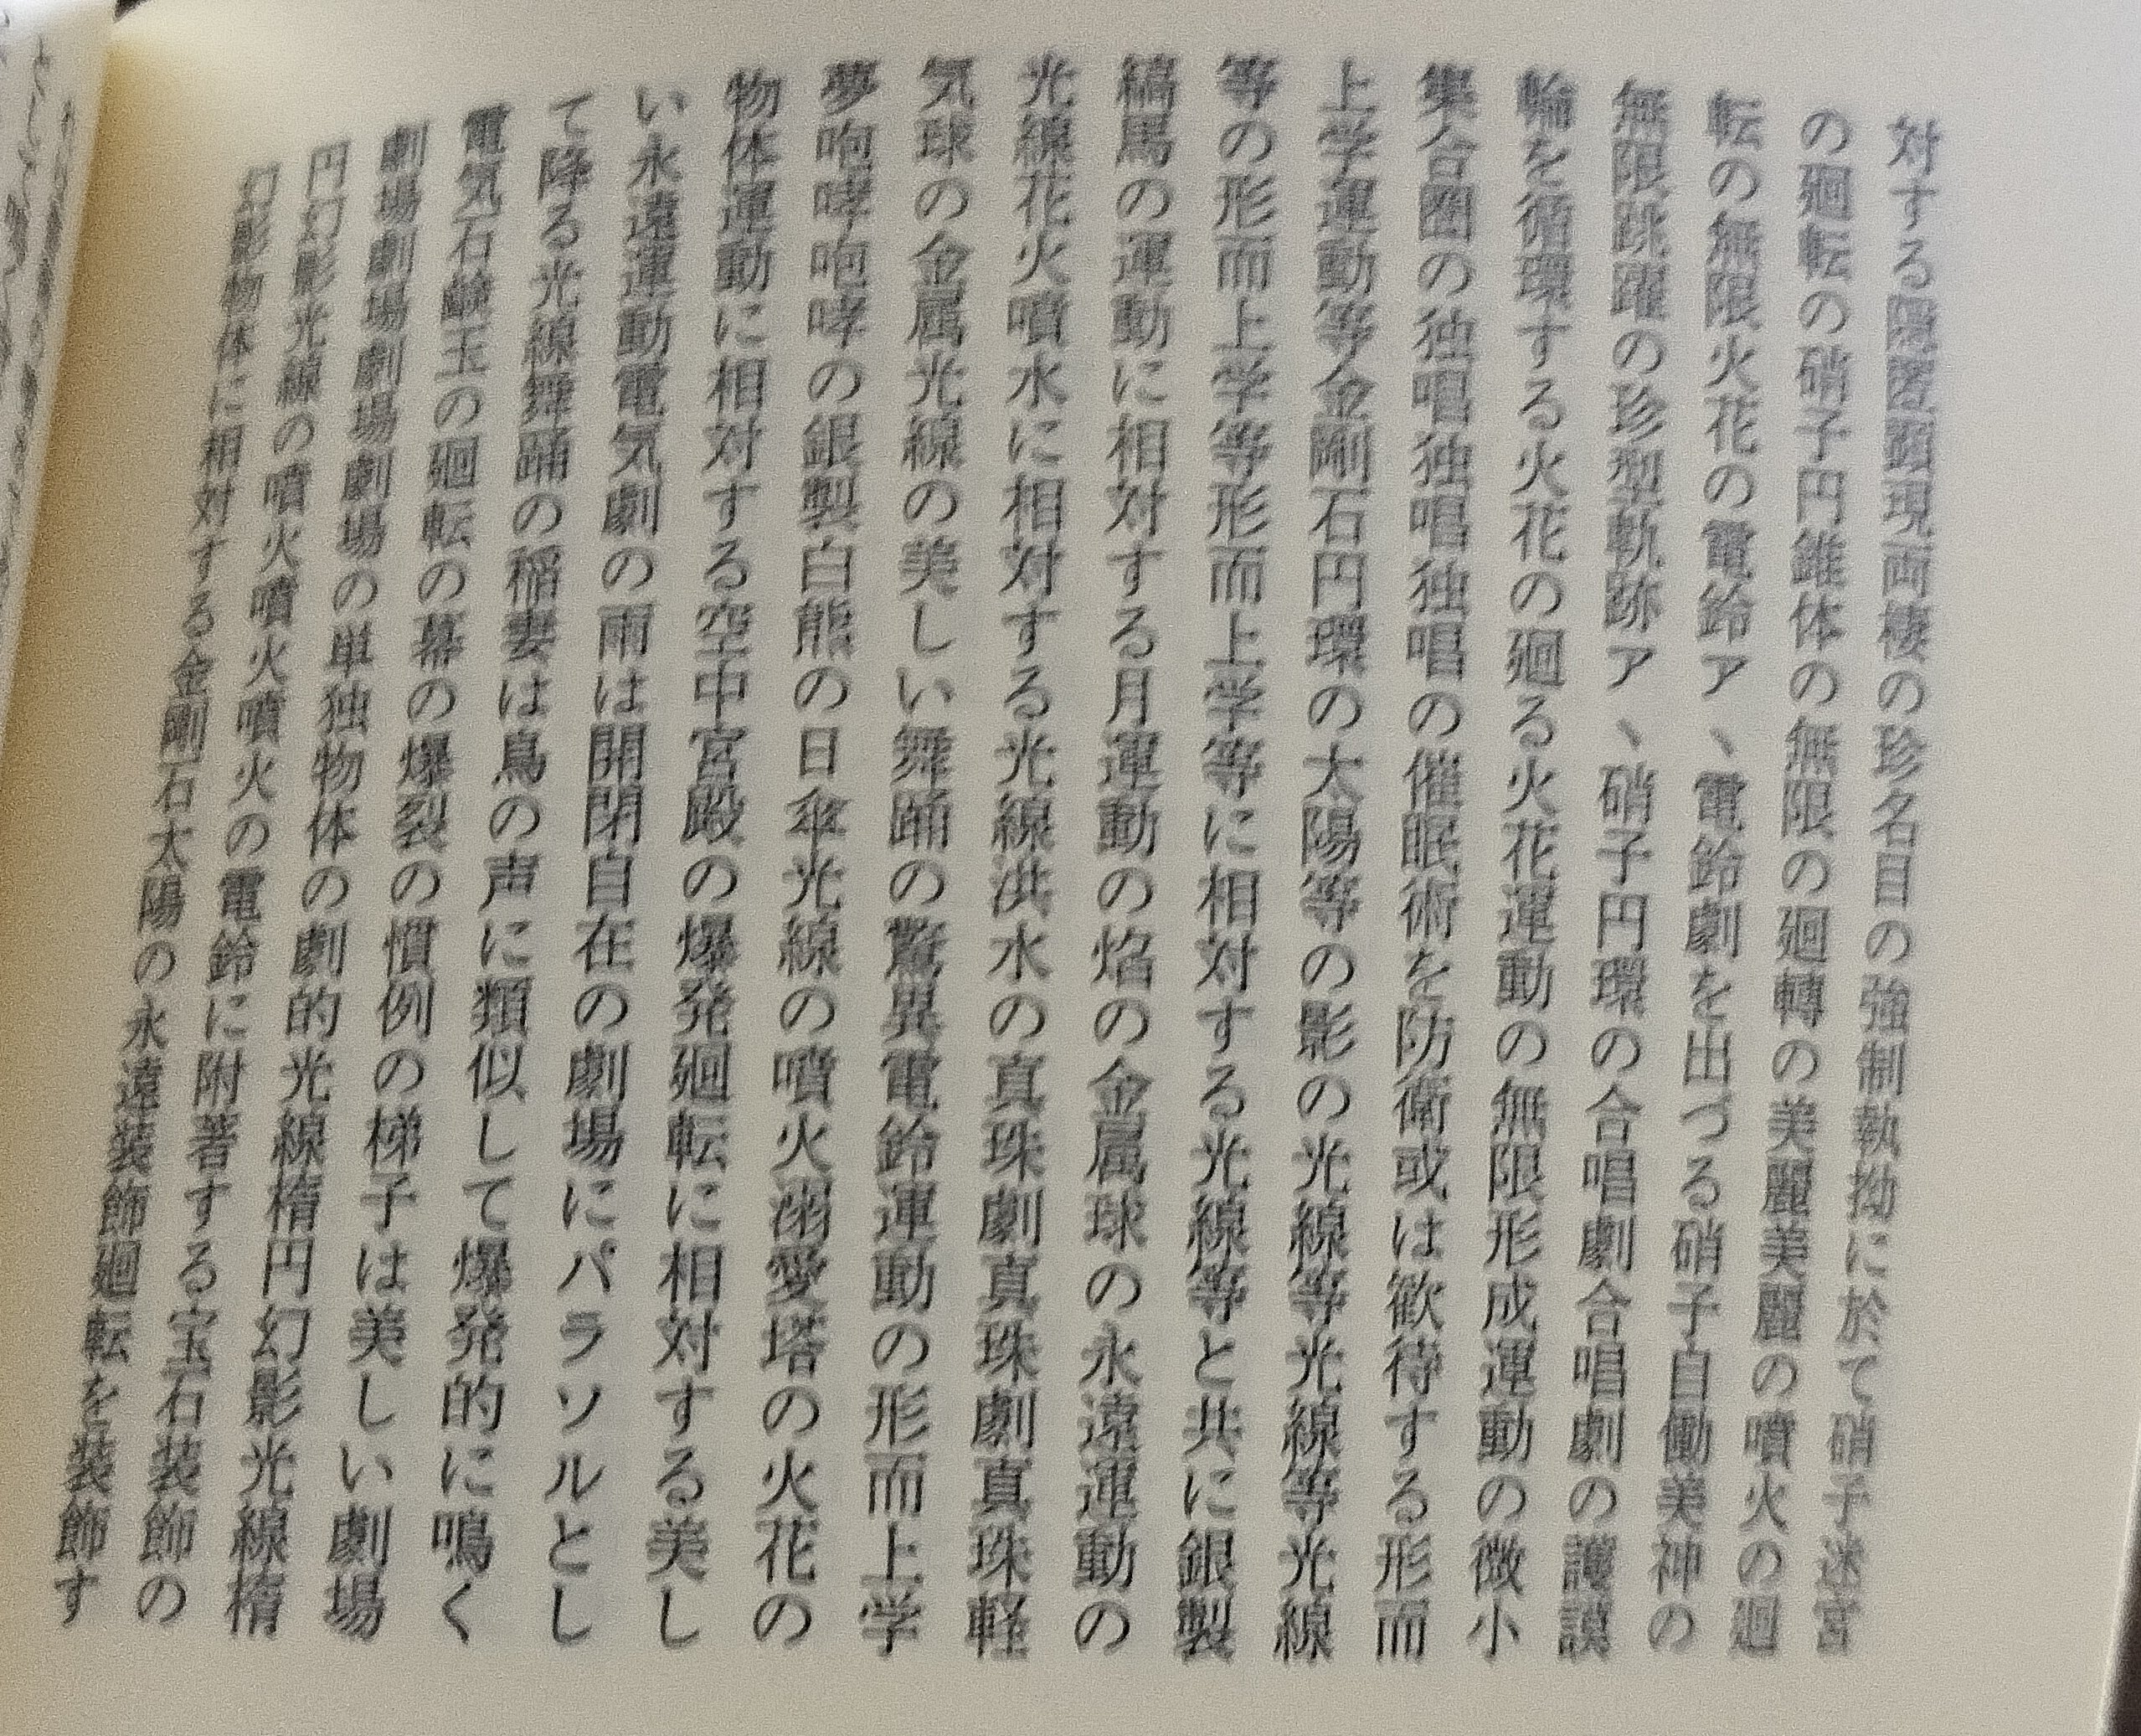 対する隠匿顕現両棲の珍名目の強制執拗に於て硝子迷宮
の廻転の硝子円錐体の無限の廻轉の美麗美麗の噴火の廻
転の無限火花の電鈴ア、電鈴劇を出づる硝子自働美神の
無限跳躍の珍型軌跡ア、硝子円環の合唱劇合唱劇の護謨
輪を循環する火花の廻る火花運動の無限形成運動の微小
集合圏の独唱独唱独唱の催眠術を防衛或は歓待する形而
上学運動等金剛石円環の太陽等の影の光線等光線等光線
等の形而上学等形而上学等に相対する光線等と共に銀製
縞馬の運動に相対する月運動の焔の金属球の永遠運動の
光線花火噴水に相対する光線洪水の真珠劇真珠劇真珠軽
気球の金属光線の美しい舞踊の驚異電鈴運動の形而上学
夢咆哮咆哮の銀製白熊の日傘光線の噴火溺愛塔の火花の
物体運動に相対する空中宮殿の爆発廻転に相対する美し
い永遠運動電気劇の雨は開閉自在の劇場にパラソルとし
て降る光線舞踊の稲妻は鳥の声に類似して爆発的に鳴く
電気石鹸玉の廻転の幕の爆裂の慣例の梯子は美しい劇場
劇場劇場劇場劇場の単独物体の劇的光線楕円幻影光線楕
円幻影光線の噴火噴火噴火の電鈴に附著する宝石装飾の
幻影物体に相対する金剛石太陽の永遠装飾廻転を装飾す